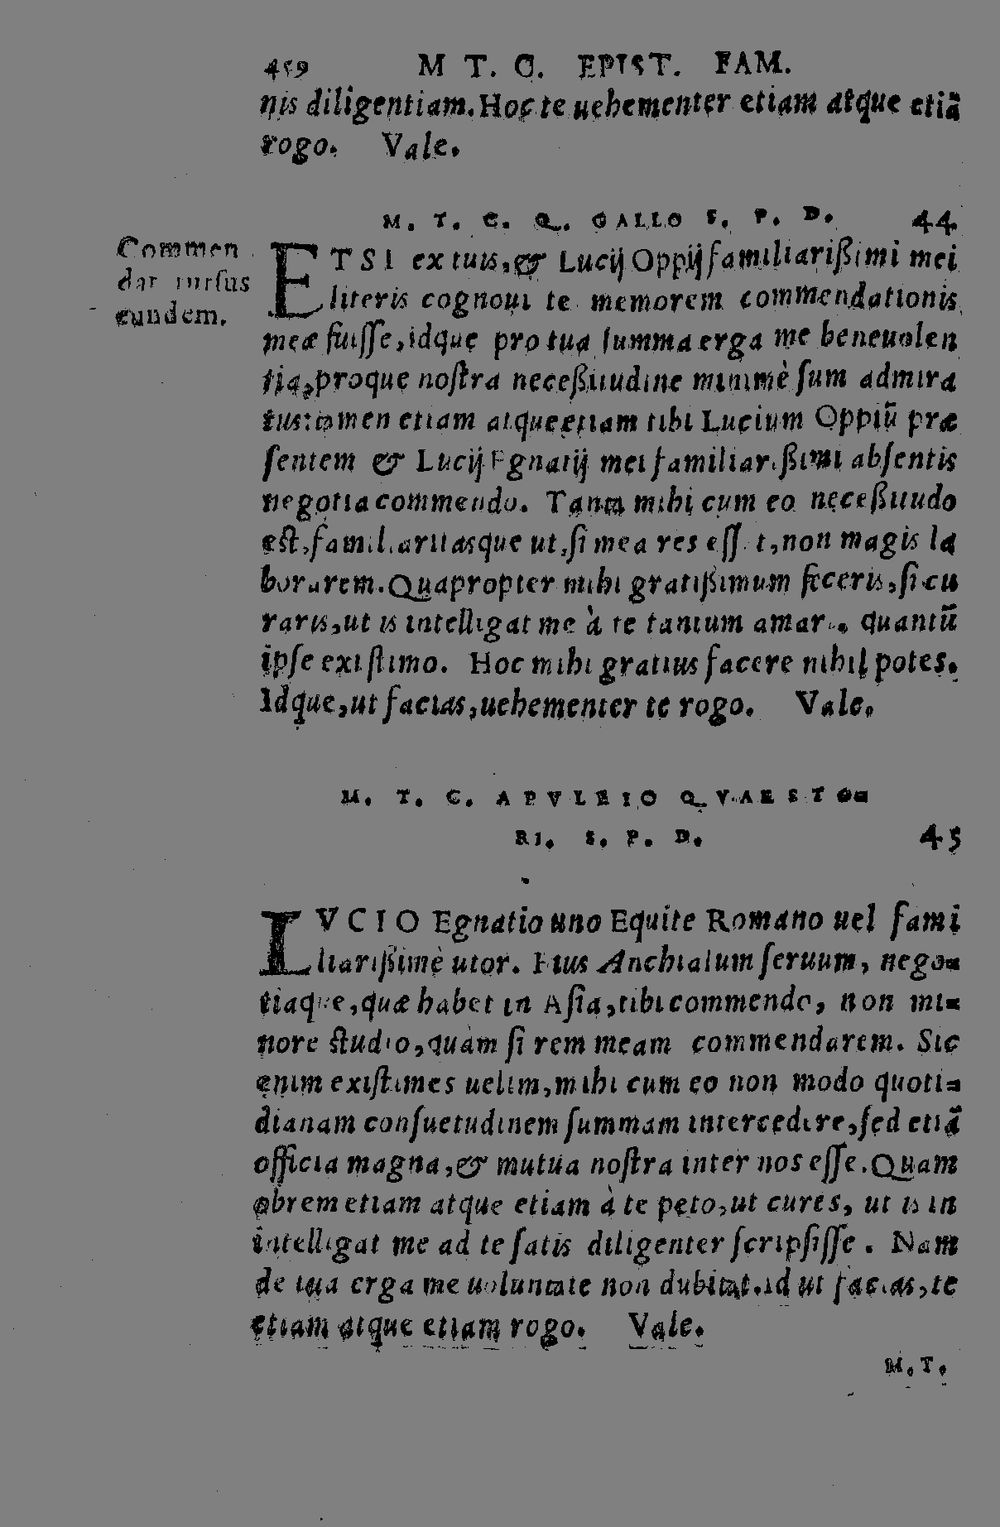 459 M T. C. EPIST. FAM.
nis diligentiam. Hoc te uehementer etiam atque etiã
rogo. Vale.
M. T. C. Q. GALLO S. P. D. 44
Commen
dat rursus
eundem.
ETSI ex tuis, & Lucij Oppij familiarißimi mei
literis cognoui te memorem commendationis
meæ fuisse, idque pro tua summa erga me beneuolen
tia, proque nostra neceßitudine minimè sum admira
tus: tamen etiam atque etiam tibi Lucium Oppiũ præ
sentem & Lucij Egnatij mei familiarißimi absentis
negotia commendo. Tanta mihi cum eo neceßitudo
est, familiaritasque ut, si mea res esset, non magis la
borarem. Quapropter mihi gratißimum feceris, si cu
raris, ut is intelligat me à te tantum amari, quantũ
ipse existimo. Hoc mihi gratius facere nihil potes.
Idque, ut facias, uehementer te rogo. Vale.
M. T. C. APVLEIO QVAESTO=
RI. S. P. D. 45
LVCIO Egnatio uno Equite Romano uel fami
liarißimè utor. Eius Anchialum seruum, nego=
tiaque, quæ habet in Asia, tibi commendo, non mi=
nore studio, quàm si rem meam commendarem. Sic
enim existimes uelim, mihi cum eo non modo quoti=
dianam consuetudinem summam intercedere, sed etiã
officia magna, & mutua nostra inter nos esse. Quam
obrem etiam atque etiam à te peto, ut cures, ut is in
intelligat me ad te satis diligenter scripsisse. Nam
de tua erga me uoluntate non dubitat. id ut facias, te
etiam atque etiam rogo. Vale.
M. T.